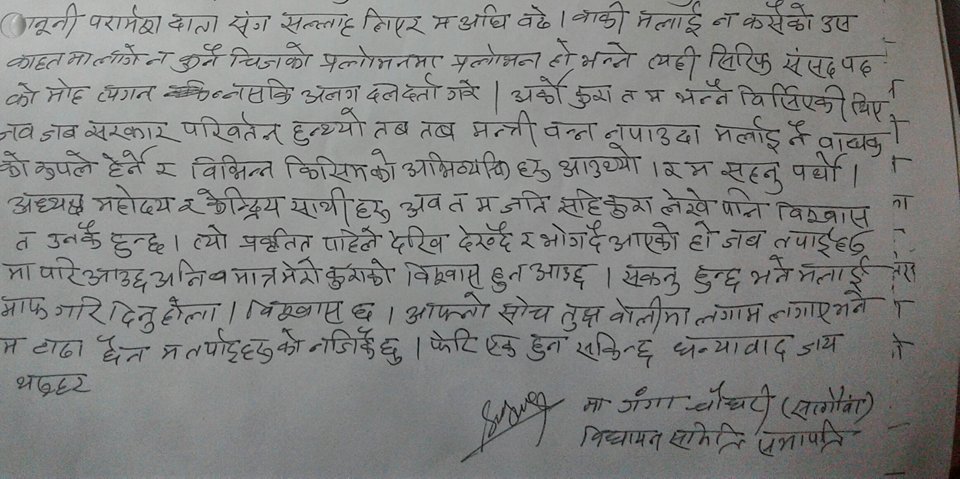 नूनी परामर्श दाता संग सल्लाह लिएर म अघि वढे । वाकी मलाई न कसैको उस
काहत मा लागे न कुनै चिजको प्रलोभनमा प्रलोभन हो भन्ने त्यही सिर्फ संसद पद
को मोह त्यगन नसकि अलग दल दर्ता गरे । अर्को कुरा त म भन्नै विर्सिएकी थिए
जव जव सरकार परिवर्तन हुन्थ्यो तब तब मन्त्री वन्न नपाउदा मलाई नै वाधक
को रुपले हेर्ने र विभिन्न किसिमको अभिव्यक्ति हरु आउथ्यो । र म सहनु पर्थो ।
अध्यक्ष महोदय र केन्द्रिय साथी हरु अव त म जति सहि कुरा लेखे पनि विश्वास
त उनकै हुन्छ । त्यो प्रवृतित पहिले देखि देख्दै र भोग्दै आएको हो जब तपाईहरु
मा परि आउछ अनि व मात्र मेरो कुराको विश्वास हुन आउछ । सक्नु हुन्छ भने मलाई
माफ गरि दिनु होला । विश्वास छ । आफ्नो सोच तुक्ष वोलीमा लगाम लगाए भने
म टाढा छैन म तपाईहरु को नजिकै छु । फेरि एक हुन सकिन्छ धन्यावाद जय
थरुहट
मा गंगा चौधरी (सत्गौवा)
विधायन समिति सभापति